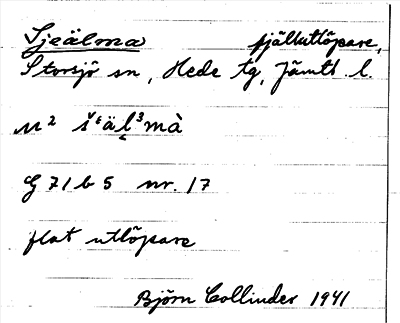 Sjeälma fjällutlöpare,
Storsjö sn, Hede tg, Jämtl. l.
M² šᵋäl̥³mà
G 71 b 5 nr. 17
flat utlöpare
Björn Collinder 1941